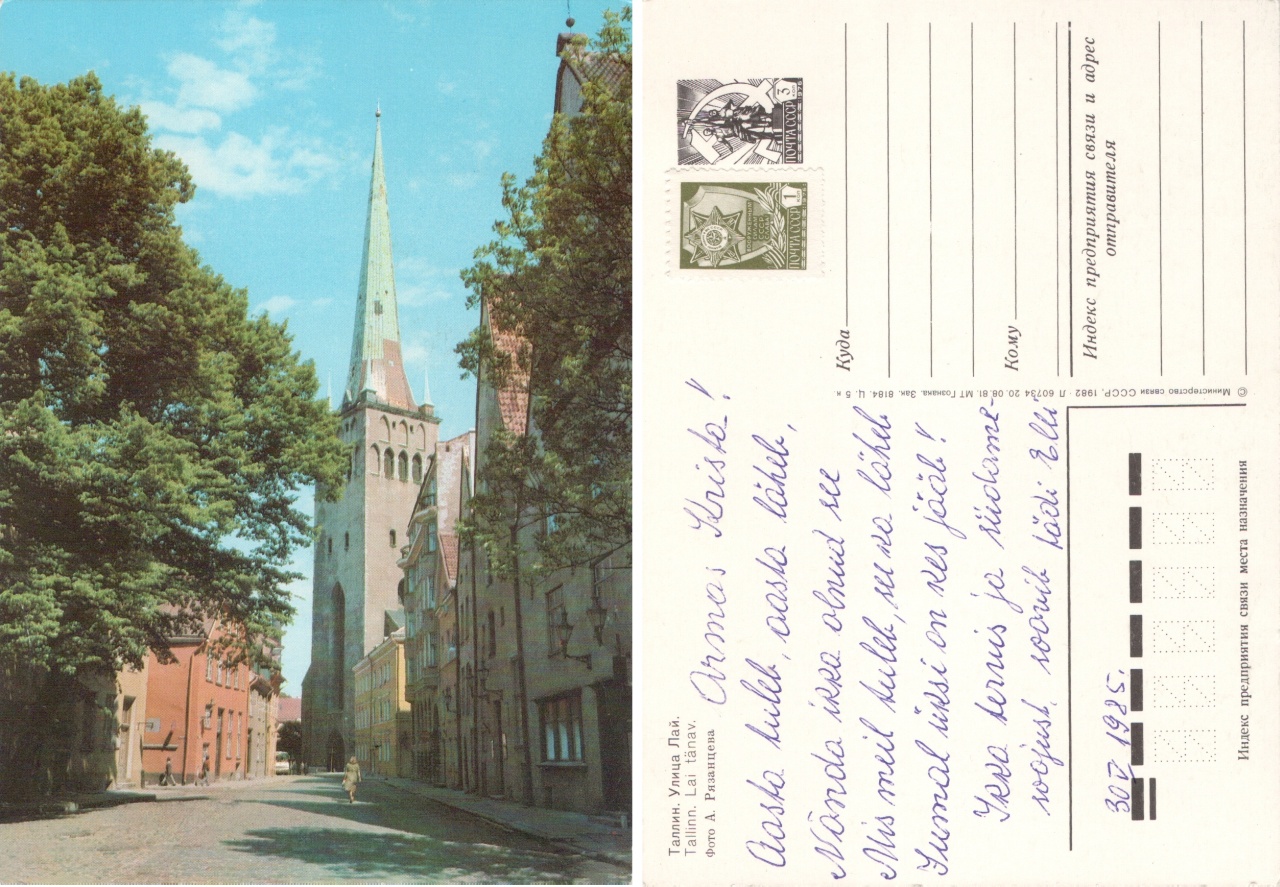 Таллин. Улица Лай.
Tallinn. Lai tänav.
Фото А. Рязанцева
Armas Krista!
Aasta tuleb, aasta läheb,
Nõnda ikka olnud see
Mis meil tuleb, see ka läheb
Jumal üksi on kes jääb!
Ikka tervis ja südame-
soojust, soovib tädi Elli
30 V 1985.
3
КОП
1976
ПОЧТА СССР
1
КОП
ПОЧТА СССР
Куда
Кому
Индекс предприятия связи и адрес
отправителя
© Министерство связи СССР, 1982. Л 60734 20.08.81. МТ Гознака. Зак. 8184. Ц. 5 к
Индекс предприятия связи места назначения